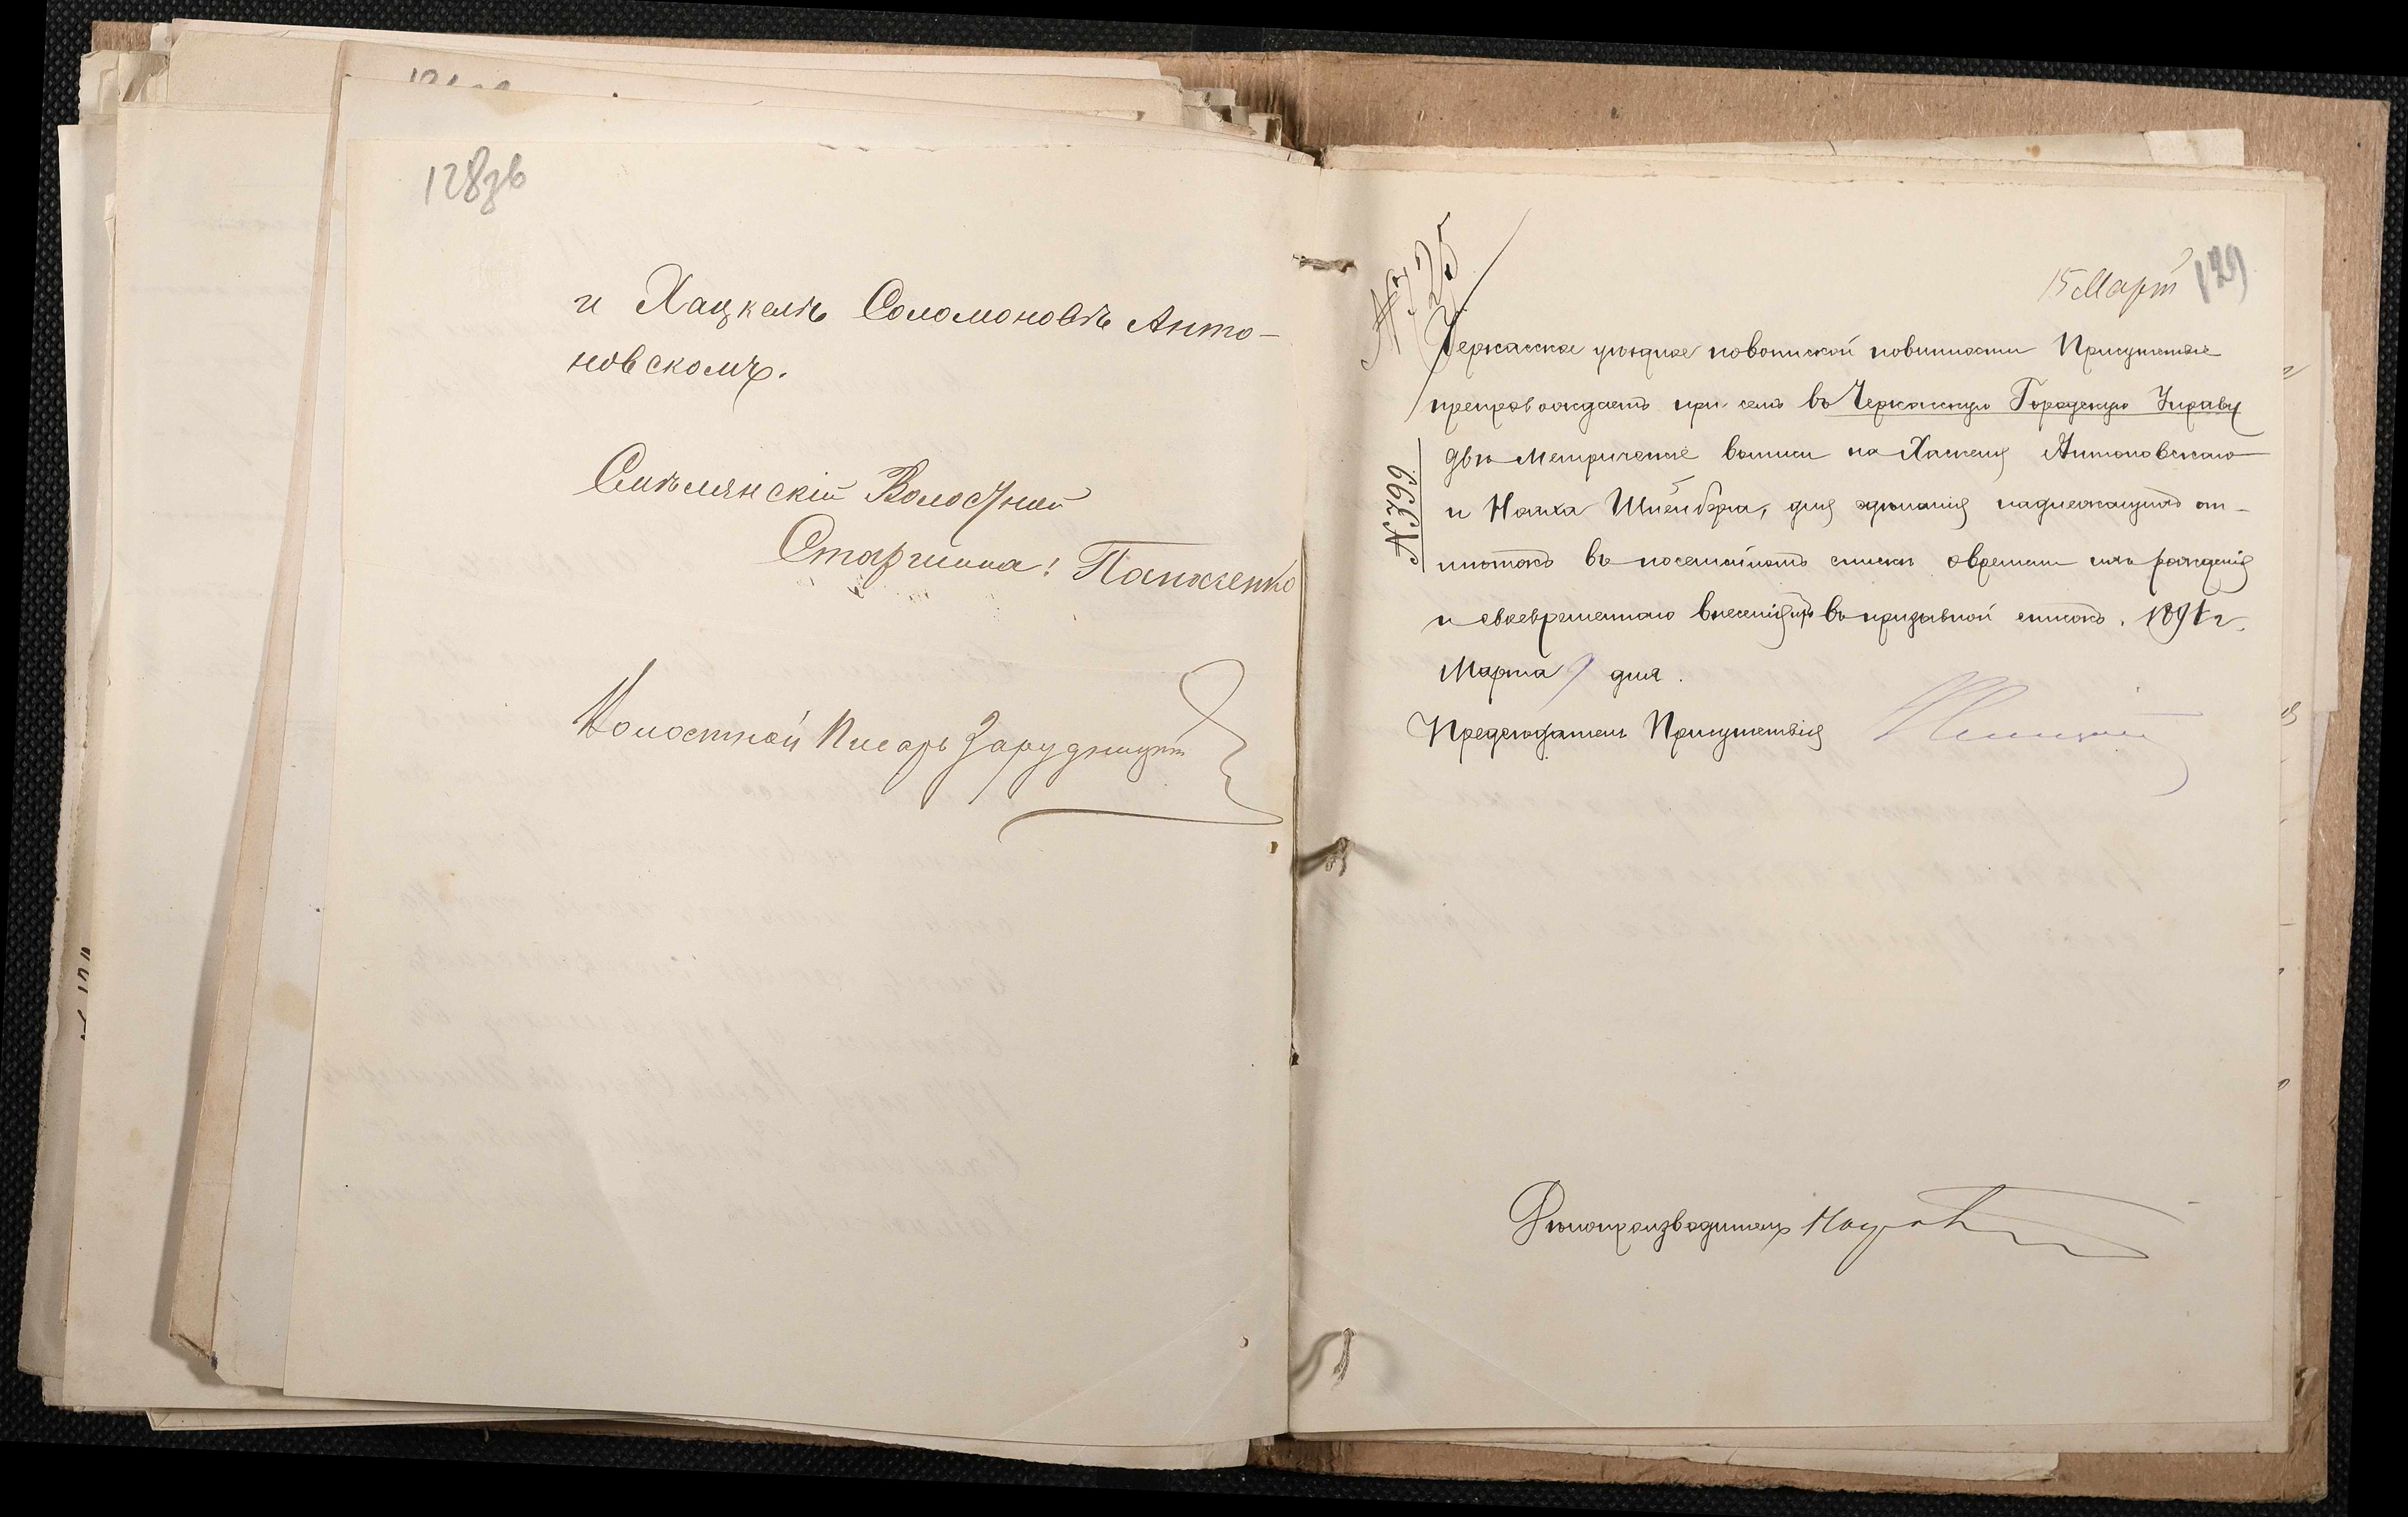 128зв
и Хацкелѣ Соломоновѣ Анто-
новскомъ.
Смѣлянскій Волостной
Старшина: Панасенко
Волостной Писарь
№ 725
15 Март
129
Черкасское уѣздное по воинской повинности Присутствіе
препровождаетъ при семъ въ Черкасскую Городскую Управу
двѣ метрическіе выписи на Хацкеля Антоновскаго
№ 399
и Ноиха Штейнберга, для здѣланія надлежащихъ от-
мѣтокъ въ посемейномъ списки о времени ихъ рожденія
и своевременнаго внесенія ихъ въ призывной списокъ. 1891 г.
Марта 9 дня.
Предсѣдатель Присутствія
Дѣлопроизводитель